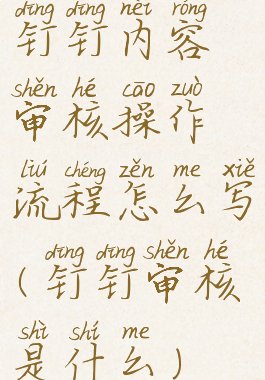 dīng dīng nèi róng
钉钉内容
shěn hé cāo zuò
审核操作
liú chéng zěn me xiě
流程怎么写
dīng dīng shěn hé
(钉钉审核
shì shí me
是什么)